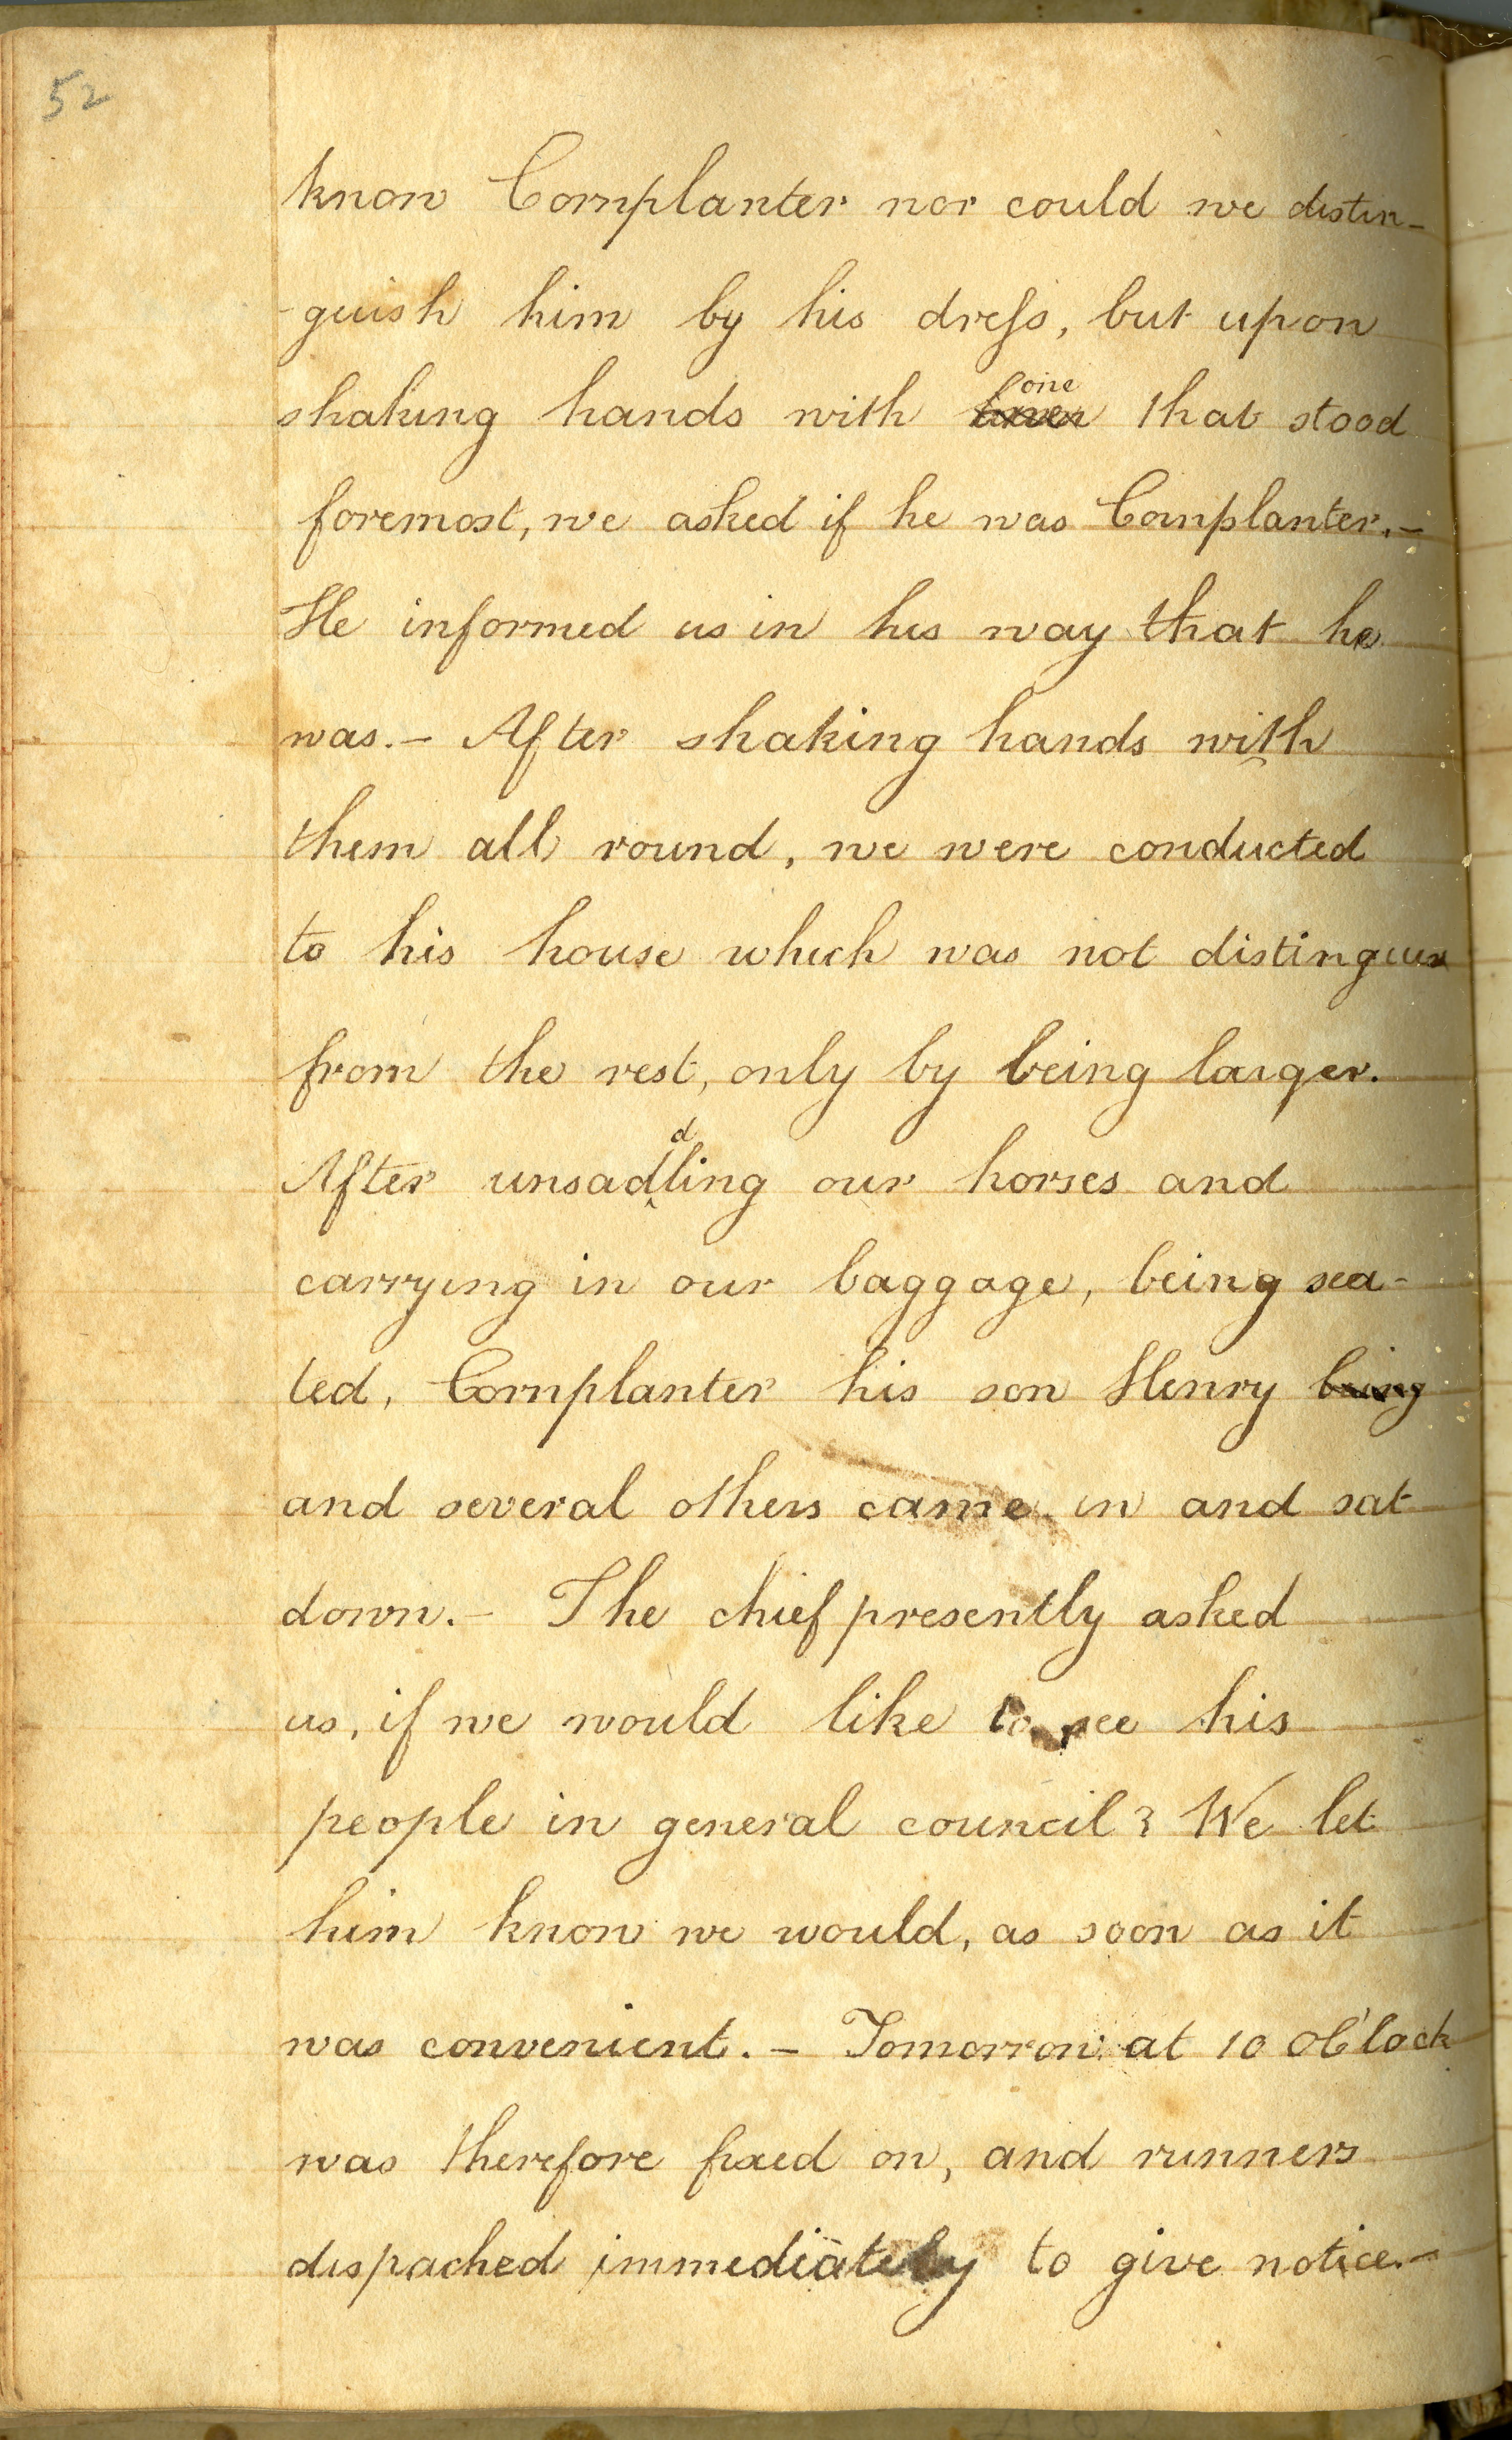 52
know Cornplanter nor could we distin-
-guish him by his dress, but upon
shaking hands with one that stood
foremost, we asked if he was Cornplanter.-
He informed us in his way that he
was.- After shaking hands with
them all round, we were conducted
to his house which was not distinguis
from the rest, only by being larger.
After unsaddling our horses and
carrying in our baggage, being sea-
ted, Cornplanter his son Henry being
and several others came in and sat
down.- The chief presently asked
us, if we would like to see his
people in general council? We let
him know we would, as soon as it
was convenient.- Tomorrow at 10 OC'lock
was therefore fixed on, and runners
dispached immediately to give notice.-